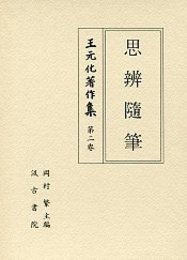 思辨隨筆
王元化著作集 第二巻
岡村繁主編
汲古書院